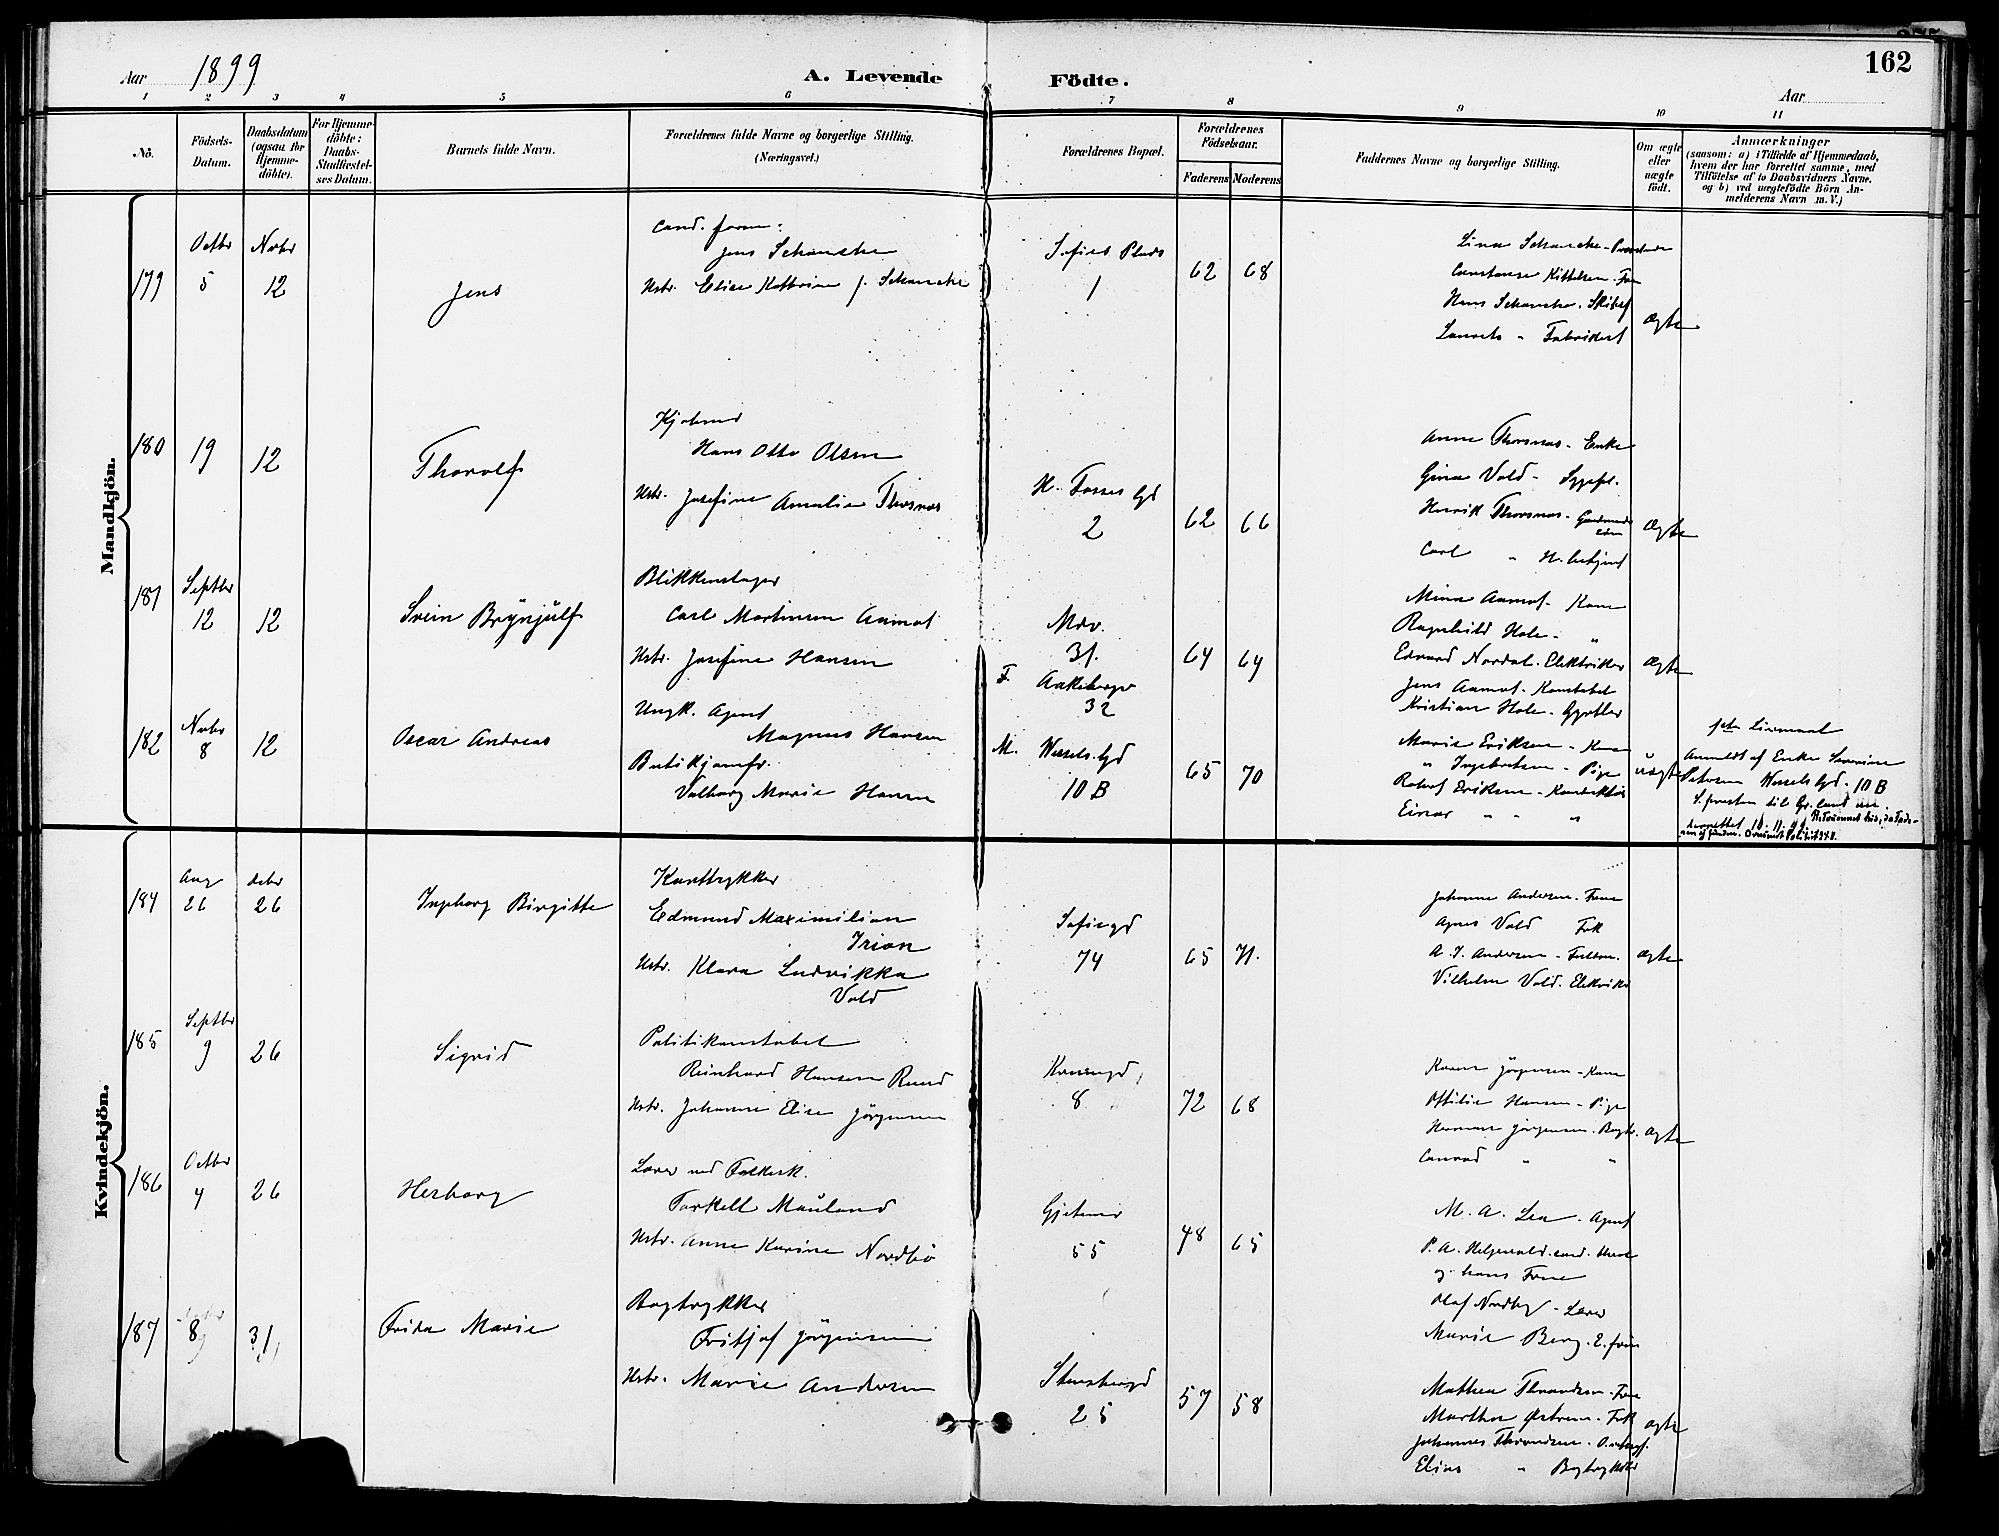 162
Aar 1899
A. Levende Födte.
Aar
1 2 3 4 5 6 7 8 9 10 11
No.
Födsels-Datum.
Daabsdatum (ogsaa for Hjemmedöbte).
For Hjemmedöbte: Daabs-Stadfæstelses Datum.
Barnets fulde Navn.
Forældrenes fulde Navne og borgerlige Stilling. (Næringsvei.)
Forældrenes Bopæl.
Forældrenes Födselsaar.
Faderens Moderens
Faddernes Navne og borgerlige Stilling.
Om ægte eller uægte födt.
Anmærkninger
(saasom: a) i Tilfælde af Hjemmedaab, hvem der har forrettet samme, med Tilföielse af to Daabsvidners Navne, og b) ved uægtefödte Börn Anmelderens Navn m. V.)
Mandkjön.
179
Octbr 5
Novbr 12
Jens
cand. farm:
Jens Schanche
Hstr. Elise Kathrine f. Schanche
Sofies Plads 1
62 68
Lina Schanche
Constanse Kittelsen - Frue
Hans Schanche - Skibsf
Laurits " Fabrikest
ægte
180
19
12
Thorolf
Kjøbmd
Hans Otto Olsen
Hstr. Josefine Amalie Thorsnæs
H. Fosses Gd 2
62 66
Anne Thorsnæs - Enke
Gina Vold - Sypge.
Henrik Thorsnæs
Carl " H.betjent
ægte
181
Septbr 12
12
Svein Brynjulf
Blikkenslager
Carl Martinsen Aamot
Hstr. Josefine Hansen
Mdv. 31.
64 64
Mina Aamot - Kone
Ragnhild Hole - "
Edvard Nordal - Elektriker
Jens Aamot - Konstabel
Kristian Hole - Gjørtler
ægte
182
Novbr 8
12
Oscar Andreas
Ungk. Agent
Magnus Hansen
Butikjomfr.
Valborg Marie Hansen
F. Aakebergv 32
M. Wessels.Gd 10 B
65 70
Marie Eriksen - Kone
" Ingebretsen - Pige
Rolof Eriksen - Konduktør
Einar " "
uægte
Anmeldt af Enke Severine
Petersen Wessels Gd. 10 B
Kvindekjön.
184
Aug 26
decbr 26
Ingborg Birgitte
Karttrykker
Edmund Maximilian
Irion
Hstr. Klara Ludvikka
Vold
Sofiegd 74
65 71.
Johanne Andersen - Frue
Agnes Vold Frk
A. J. Andersen
Vilhelm Vold. Elektrike
ægte
185
Septbr 9
26
Sigrid
Politikonstabel
Reinhard Hansen Ruud
Hstr. Johanne Elise Jørgensen
8
72 68
Karen Jørgensen - Kone
Ottilie Hansen - Pige
Herman Jørgensen - Bogtr.
Conrad " "
ægte
186
Octbr 4
26
Herborg
Lærer ved Folkesk.
Torkell Mauland
Hstr. Anne Karine Nordbö
Gjetemv 55
48 65
M. A. Lea - Agent
P. A. Helgevold - cand. theol
og hans Frue
Olaf Nordbø - Lærer
Marie Berg
187
8
31
Frida Marie
Bogtrykker
Fritjof Jørgensen
Hstr. Marie Andersen
Stensberggd 25
57 58
Mathea Throndsen - Frue
Martha Østrem - Frk
Johannes Throndsen
Elias " Bogtrykker
ægte